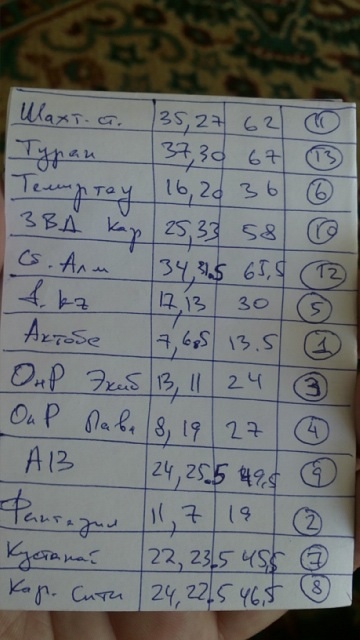 Шахт. ст. 35, 27 62 11
Туран 37, 30 67 13
Темиртау 16, 20 36 6
ЗВД Кар 25, 33 58 10
Сб. Алм 34, 31.5 65,5 12
A. kz 17, 13 30 5
Актобе 7, 6.5 13.5 1
ОиР Экиб 13, 11 24 3
ОиР Павл 8, 19 27 4
А13 24, 25.5 49,5 9
Фентазия 11, 7 18 2
Кустанай 22, 23.5 45,5 7
Кар. Сити 24, 22.5 46,5 8